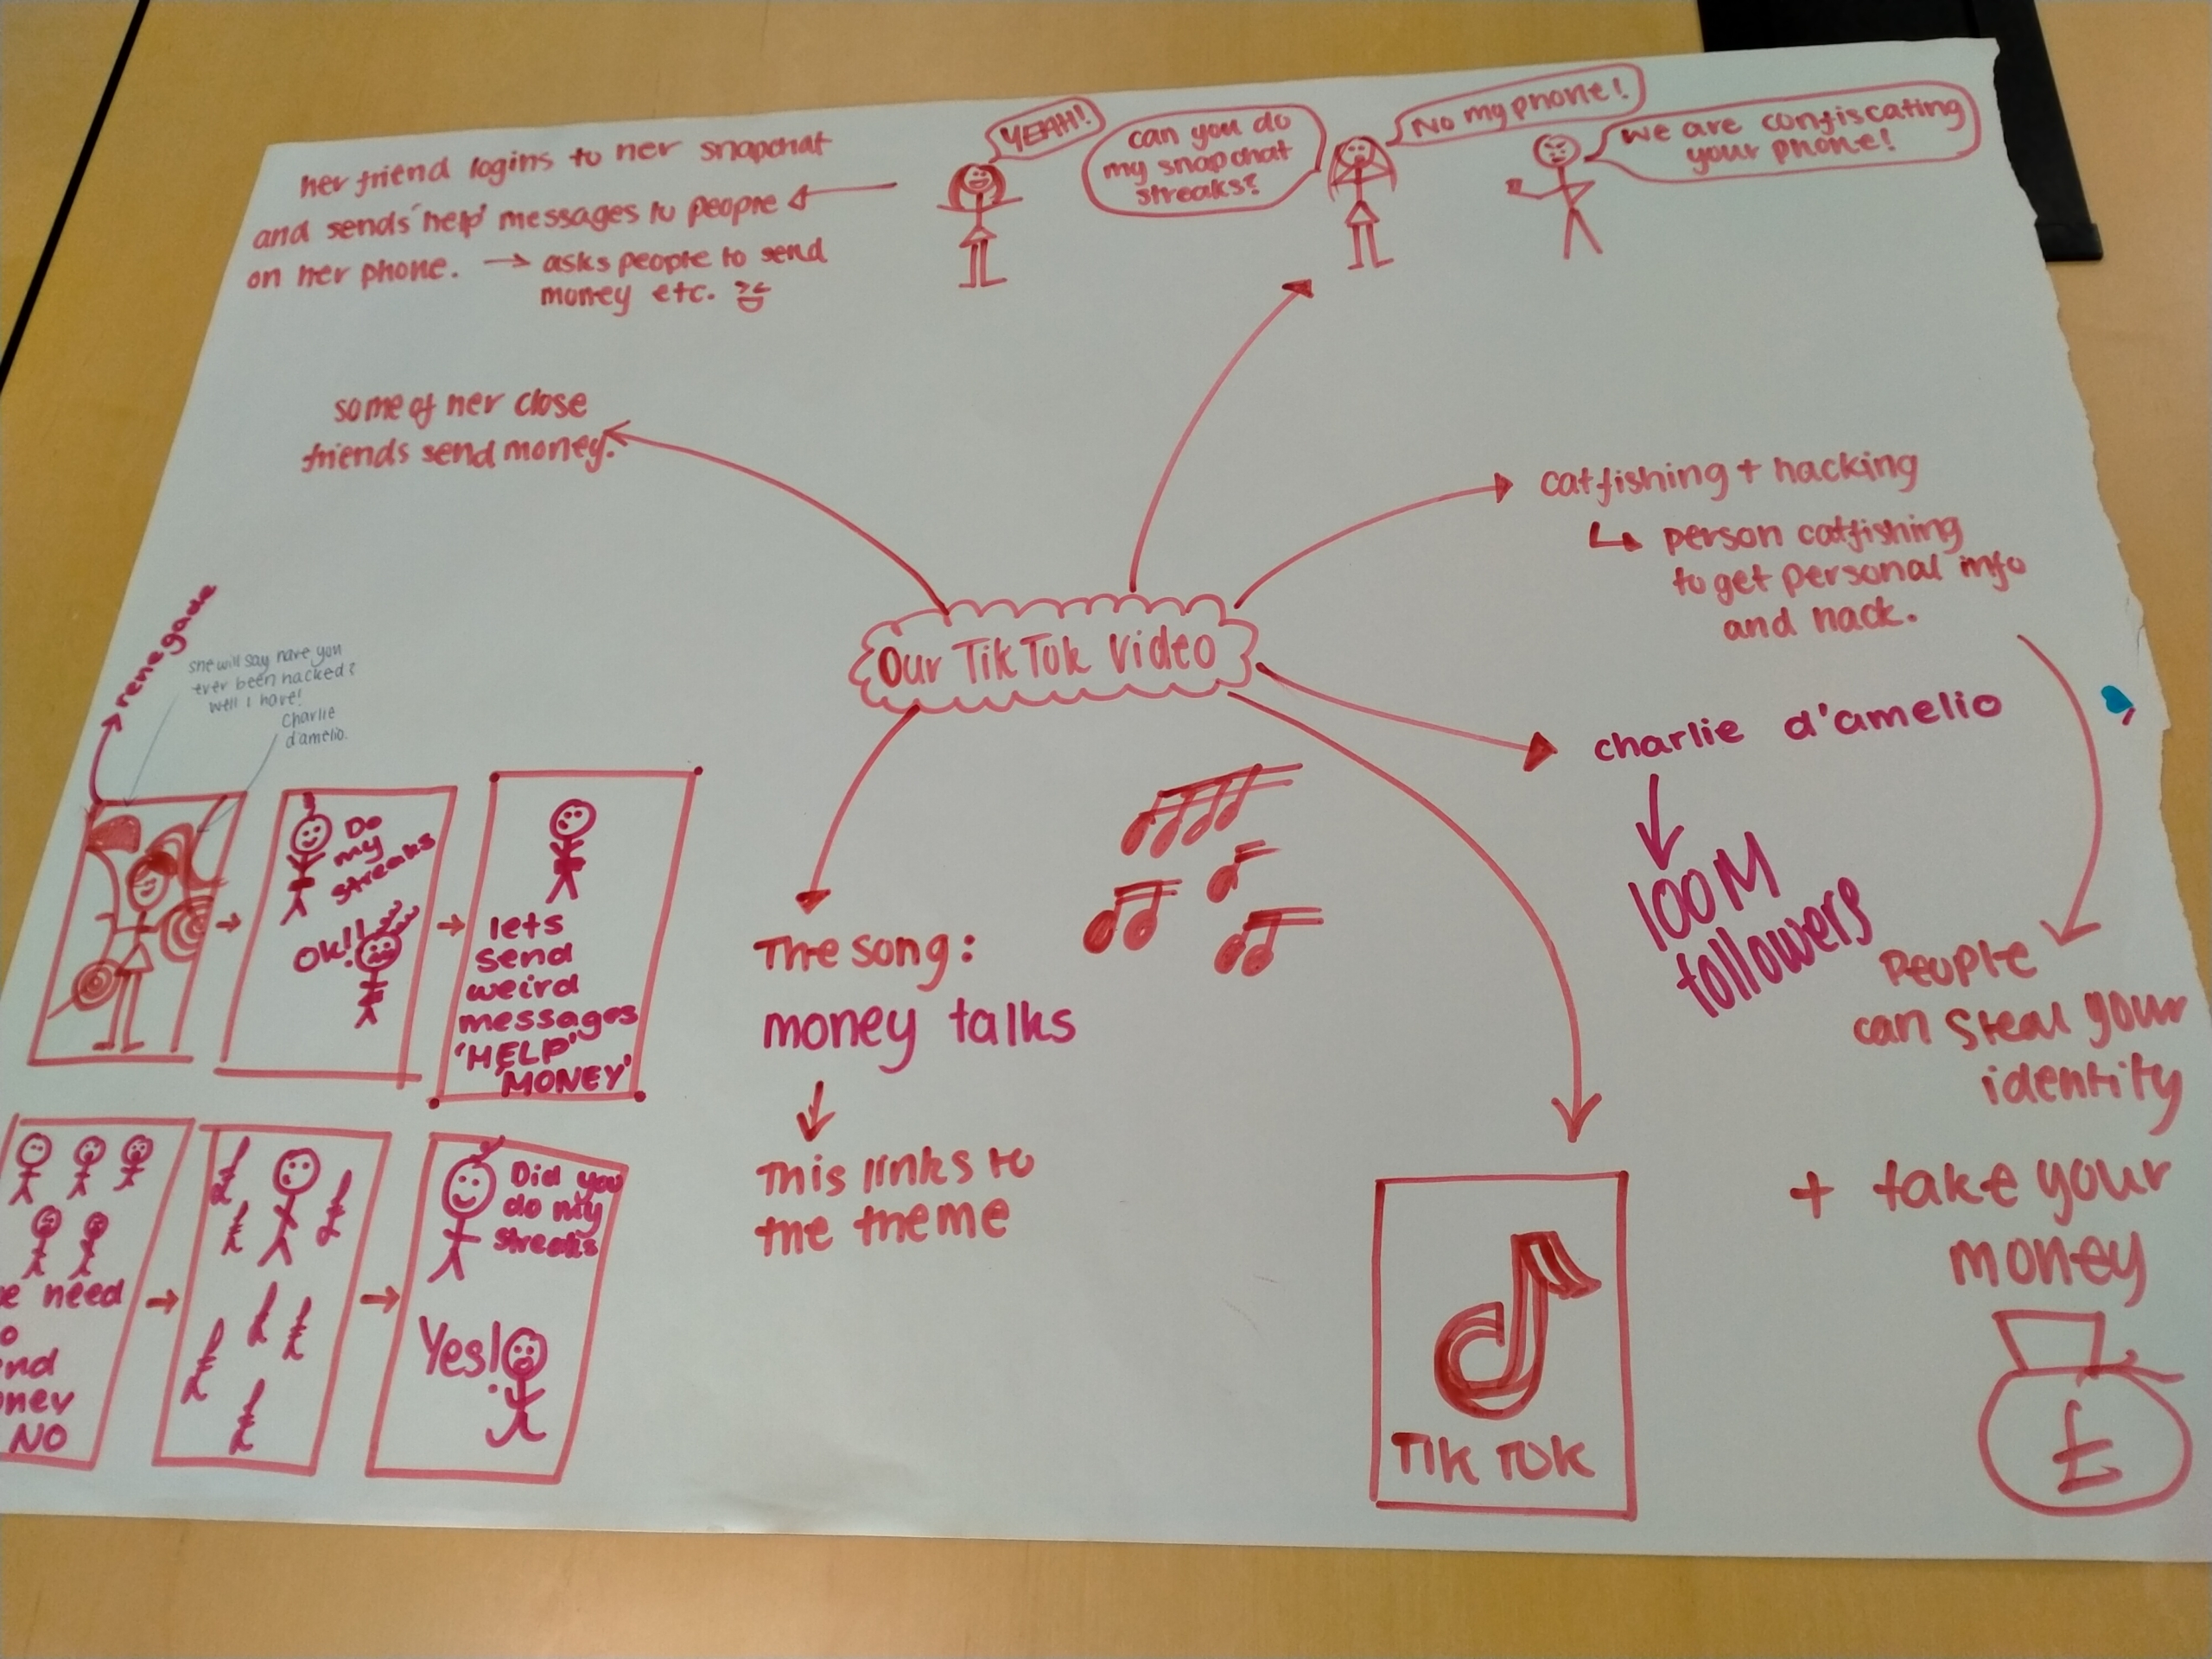 her friend logins to her snapchat
and sends 'help' messages to people
on her phone. → asks people to send
money etc.
YEAH!
can you do
my snapchat
streaks?
No my phone!
We are confiscating
your phone!
some of her close
friends send money.
catfishing + hacking
person catfishing
to get personal info
and hack.
Our TikTok Video
renegade
she will say have you
ever been hacked?
well I have!
Charlie
d'amelio.
charlie d'amelio
100M
followers
People
can steal your
identity
+ take your
money
£
The song:
money talks
This links to
the theme
TIK TOK
Do
my
streaks
OK!!
lets
send
weird
messages
'HELP'
'MONEY'
need
NO
Did you
do my
streaks
Yes!